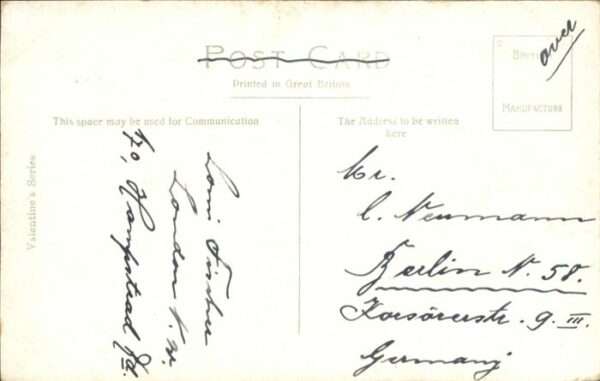 POST CARD
Printed in Great Britain
over
BRITISH
MANUFACTURE
This space may be used for Communication
The Address to be written
here
Valentine's Series
London N.W.
70, Hampstead Rd.
Mr.
C. Neumann
Berlin N. 58.
Korsörerstr. 9. III.
Germany